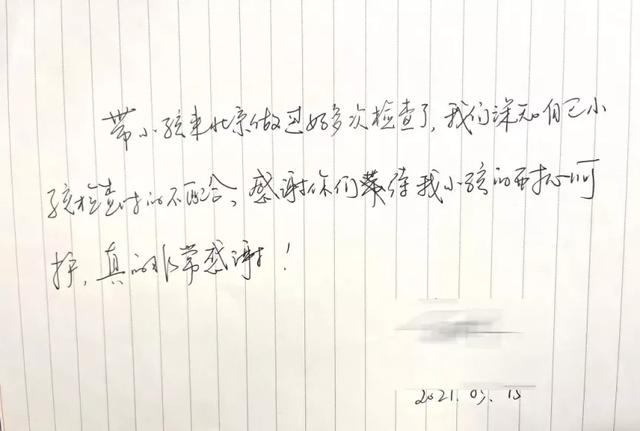 带小孩来北京做过好多次检查了,我们深知自己小
孩检查时的不配合、感谢你们对待我小孩的耐心呵
护,真的非常感谢!
2021.03.15